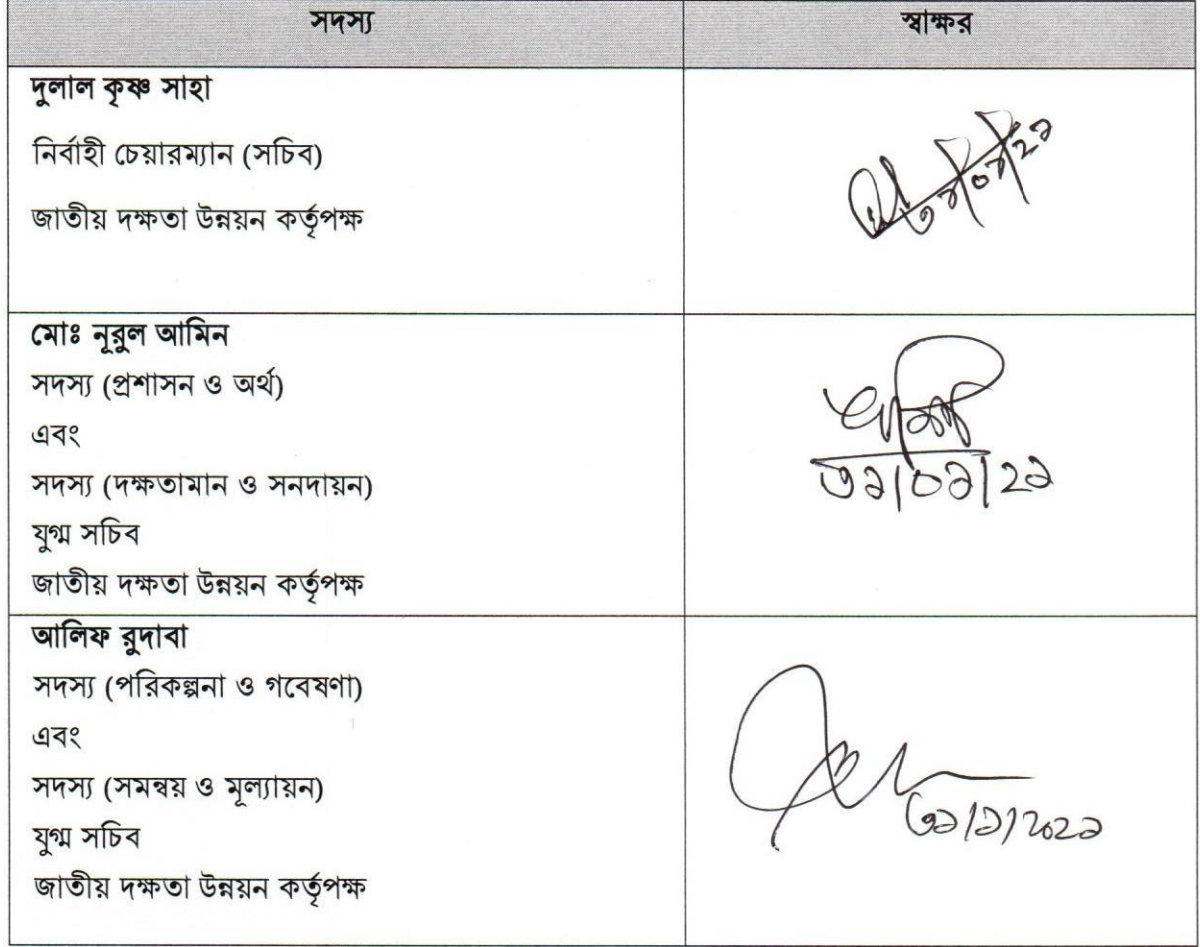 সদস্য
স্বাক্ষর
দুলাল কৃষ্ণ সাহা
নির্বাহী চেয়ারম্যান (সচিব)
জাতীয় দক্ষতা উন্নয়ন কর্তৃপক্ষ
মোঃ নূরুল আমিন
সদস্য (প্রশাসন ও অর্থ)
এবং
সদস্য (দক্ষতামান ও সনদায়ন)
যুগ্ম সচিব
জাতীয় দক্ষতা উন্নয়ন কর্তৃপক্ষ
৩১/০১/২১
আলিফ রুদাবা
সদস্য (পরিকল্পনা ও গবেষণা)
এবং
সদস্য (সমন্বয় ও মূল্যায়ন)
যুগ্ম সচিব
জাতীয় দক্ষতা উন্নয়ন কর্তৃপক্ষ
৩১/১/২০২১